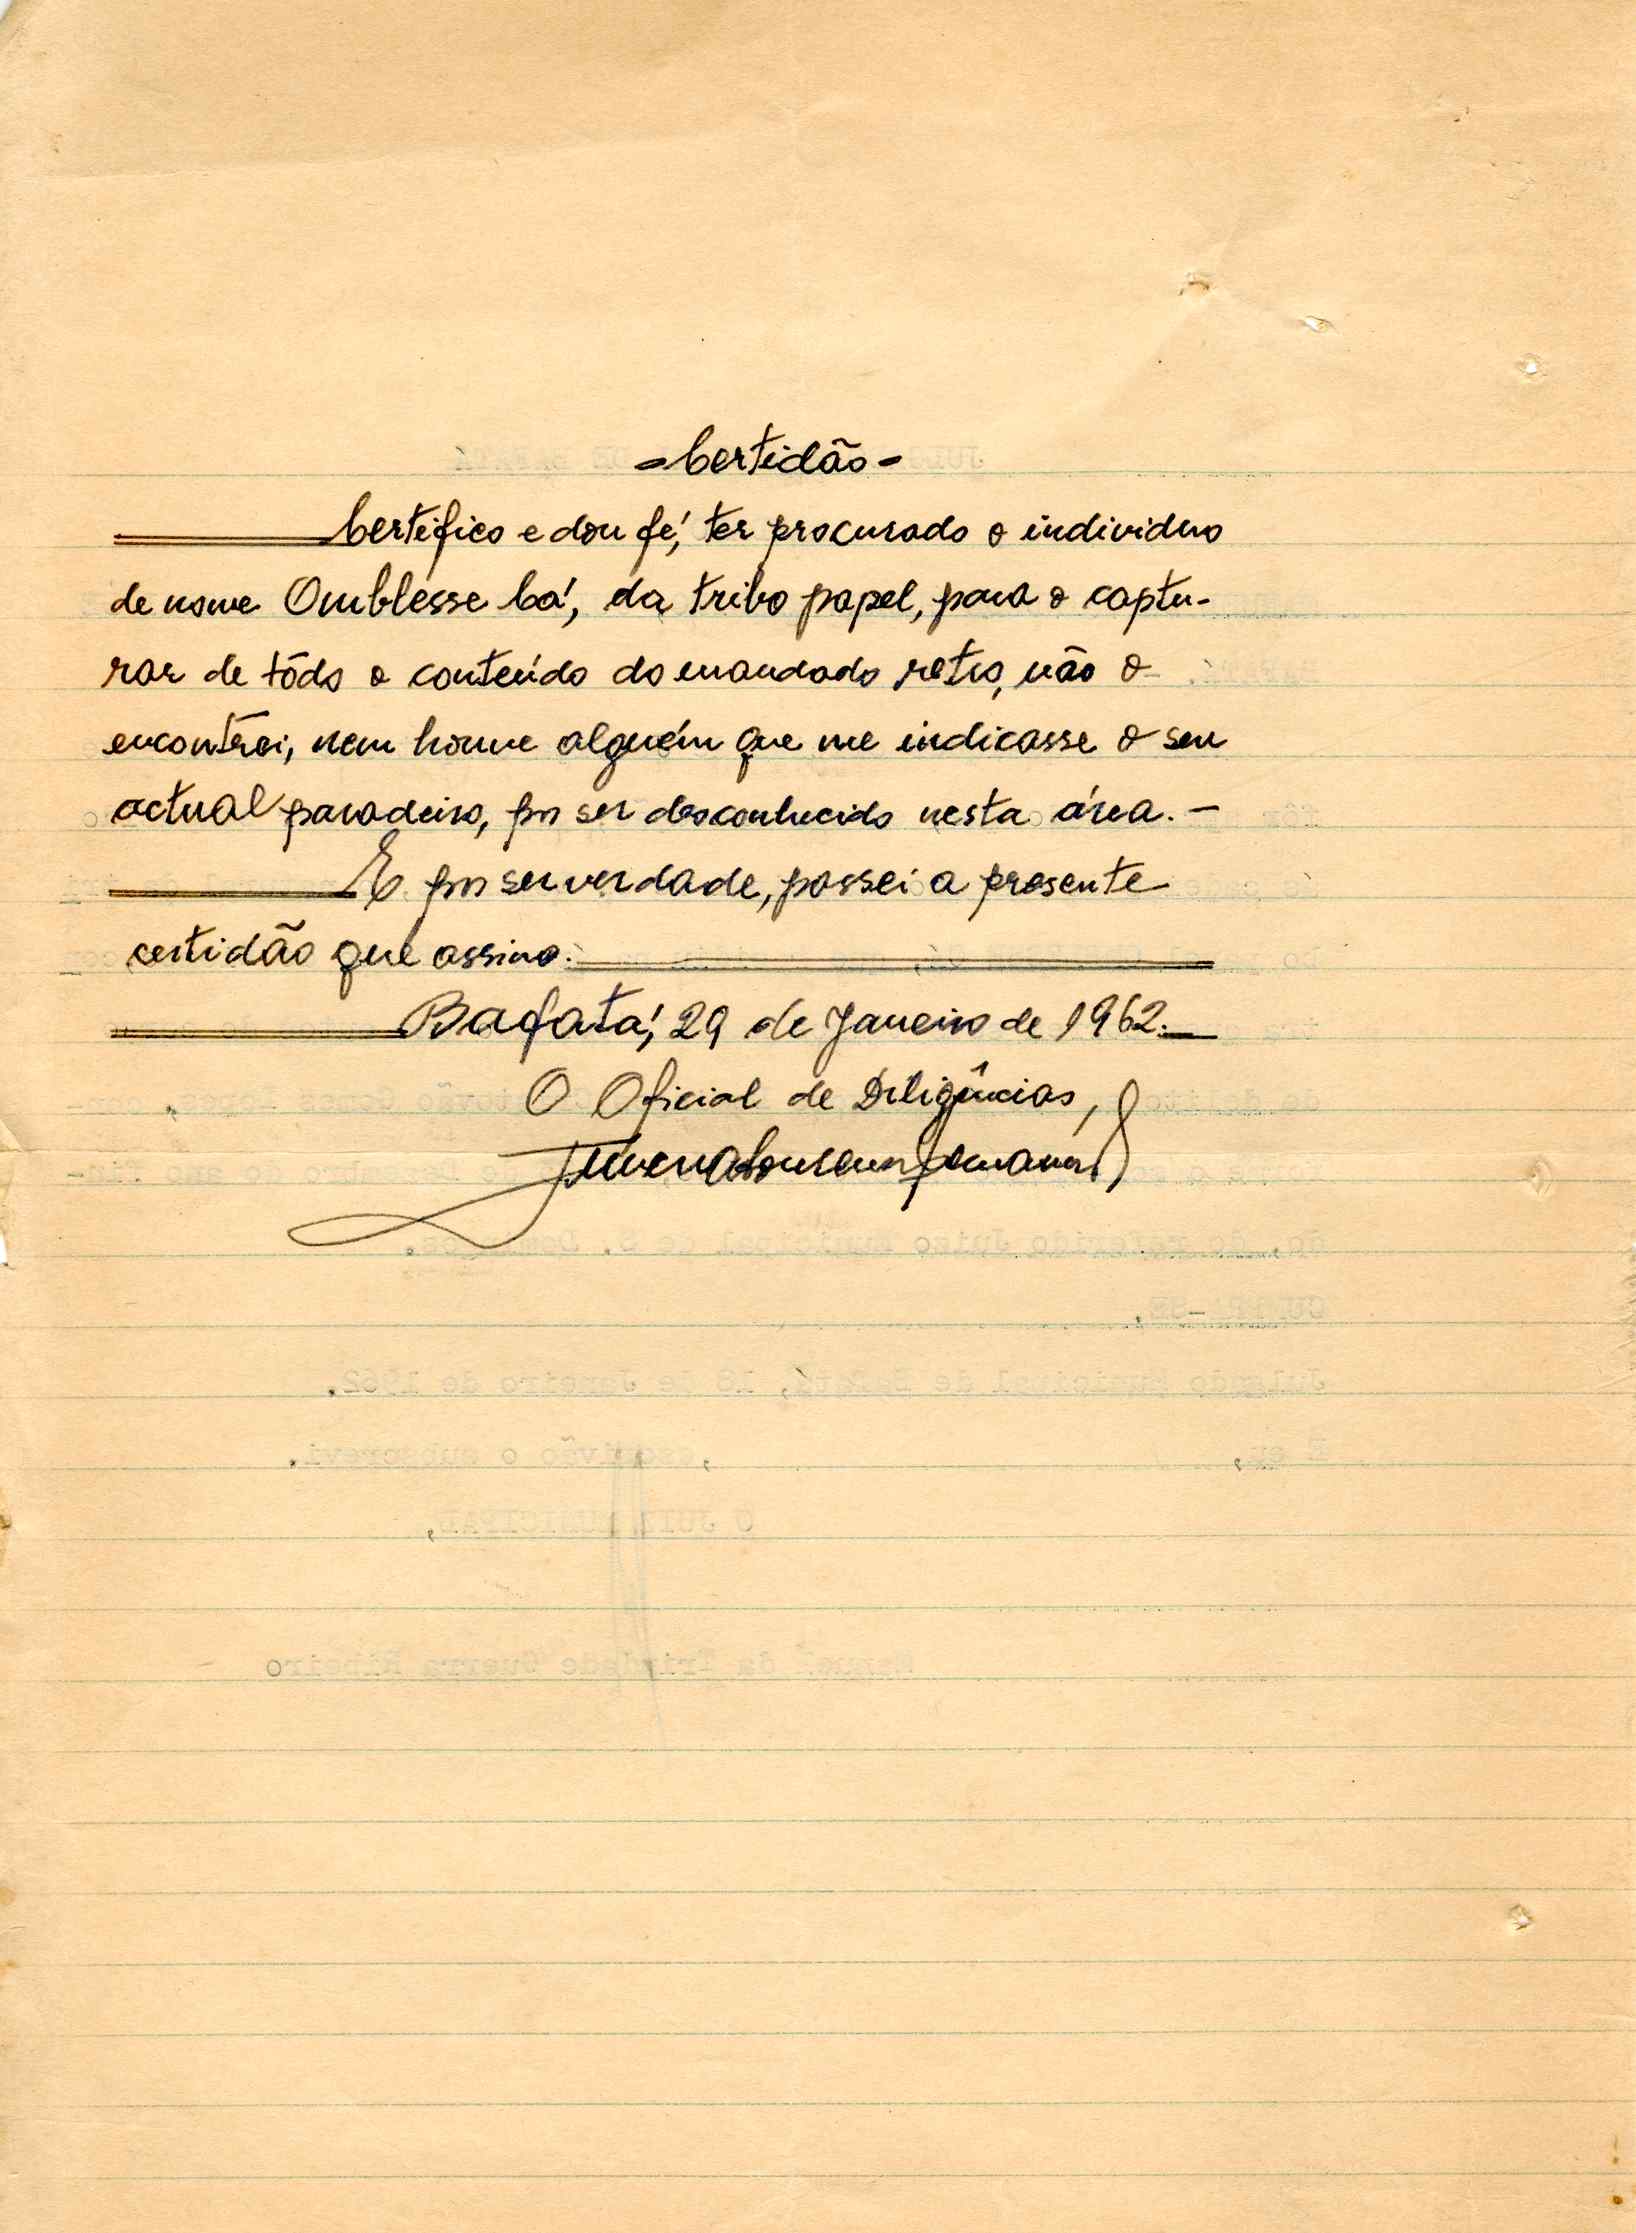 - Certidão -
Certifico e dou fé, ter procurado o individuo
de nome Omblesse Cá, da tribo papel, para o captu-
rar de tôdo o conteúdo do mandado retro, não o
encontrei, nem houve alguém que me indicasse o seu
actual paradeiro, por ser desconhecido nesta área. -
E por ser verdade, passei a presente
certidão que assino.
Bafatá, 29 de Janeiro de 1962.
O Oficial de Diligências,